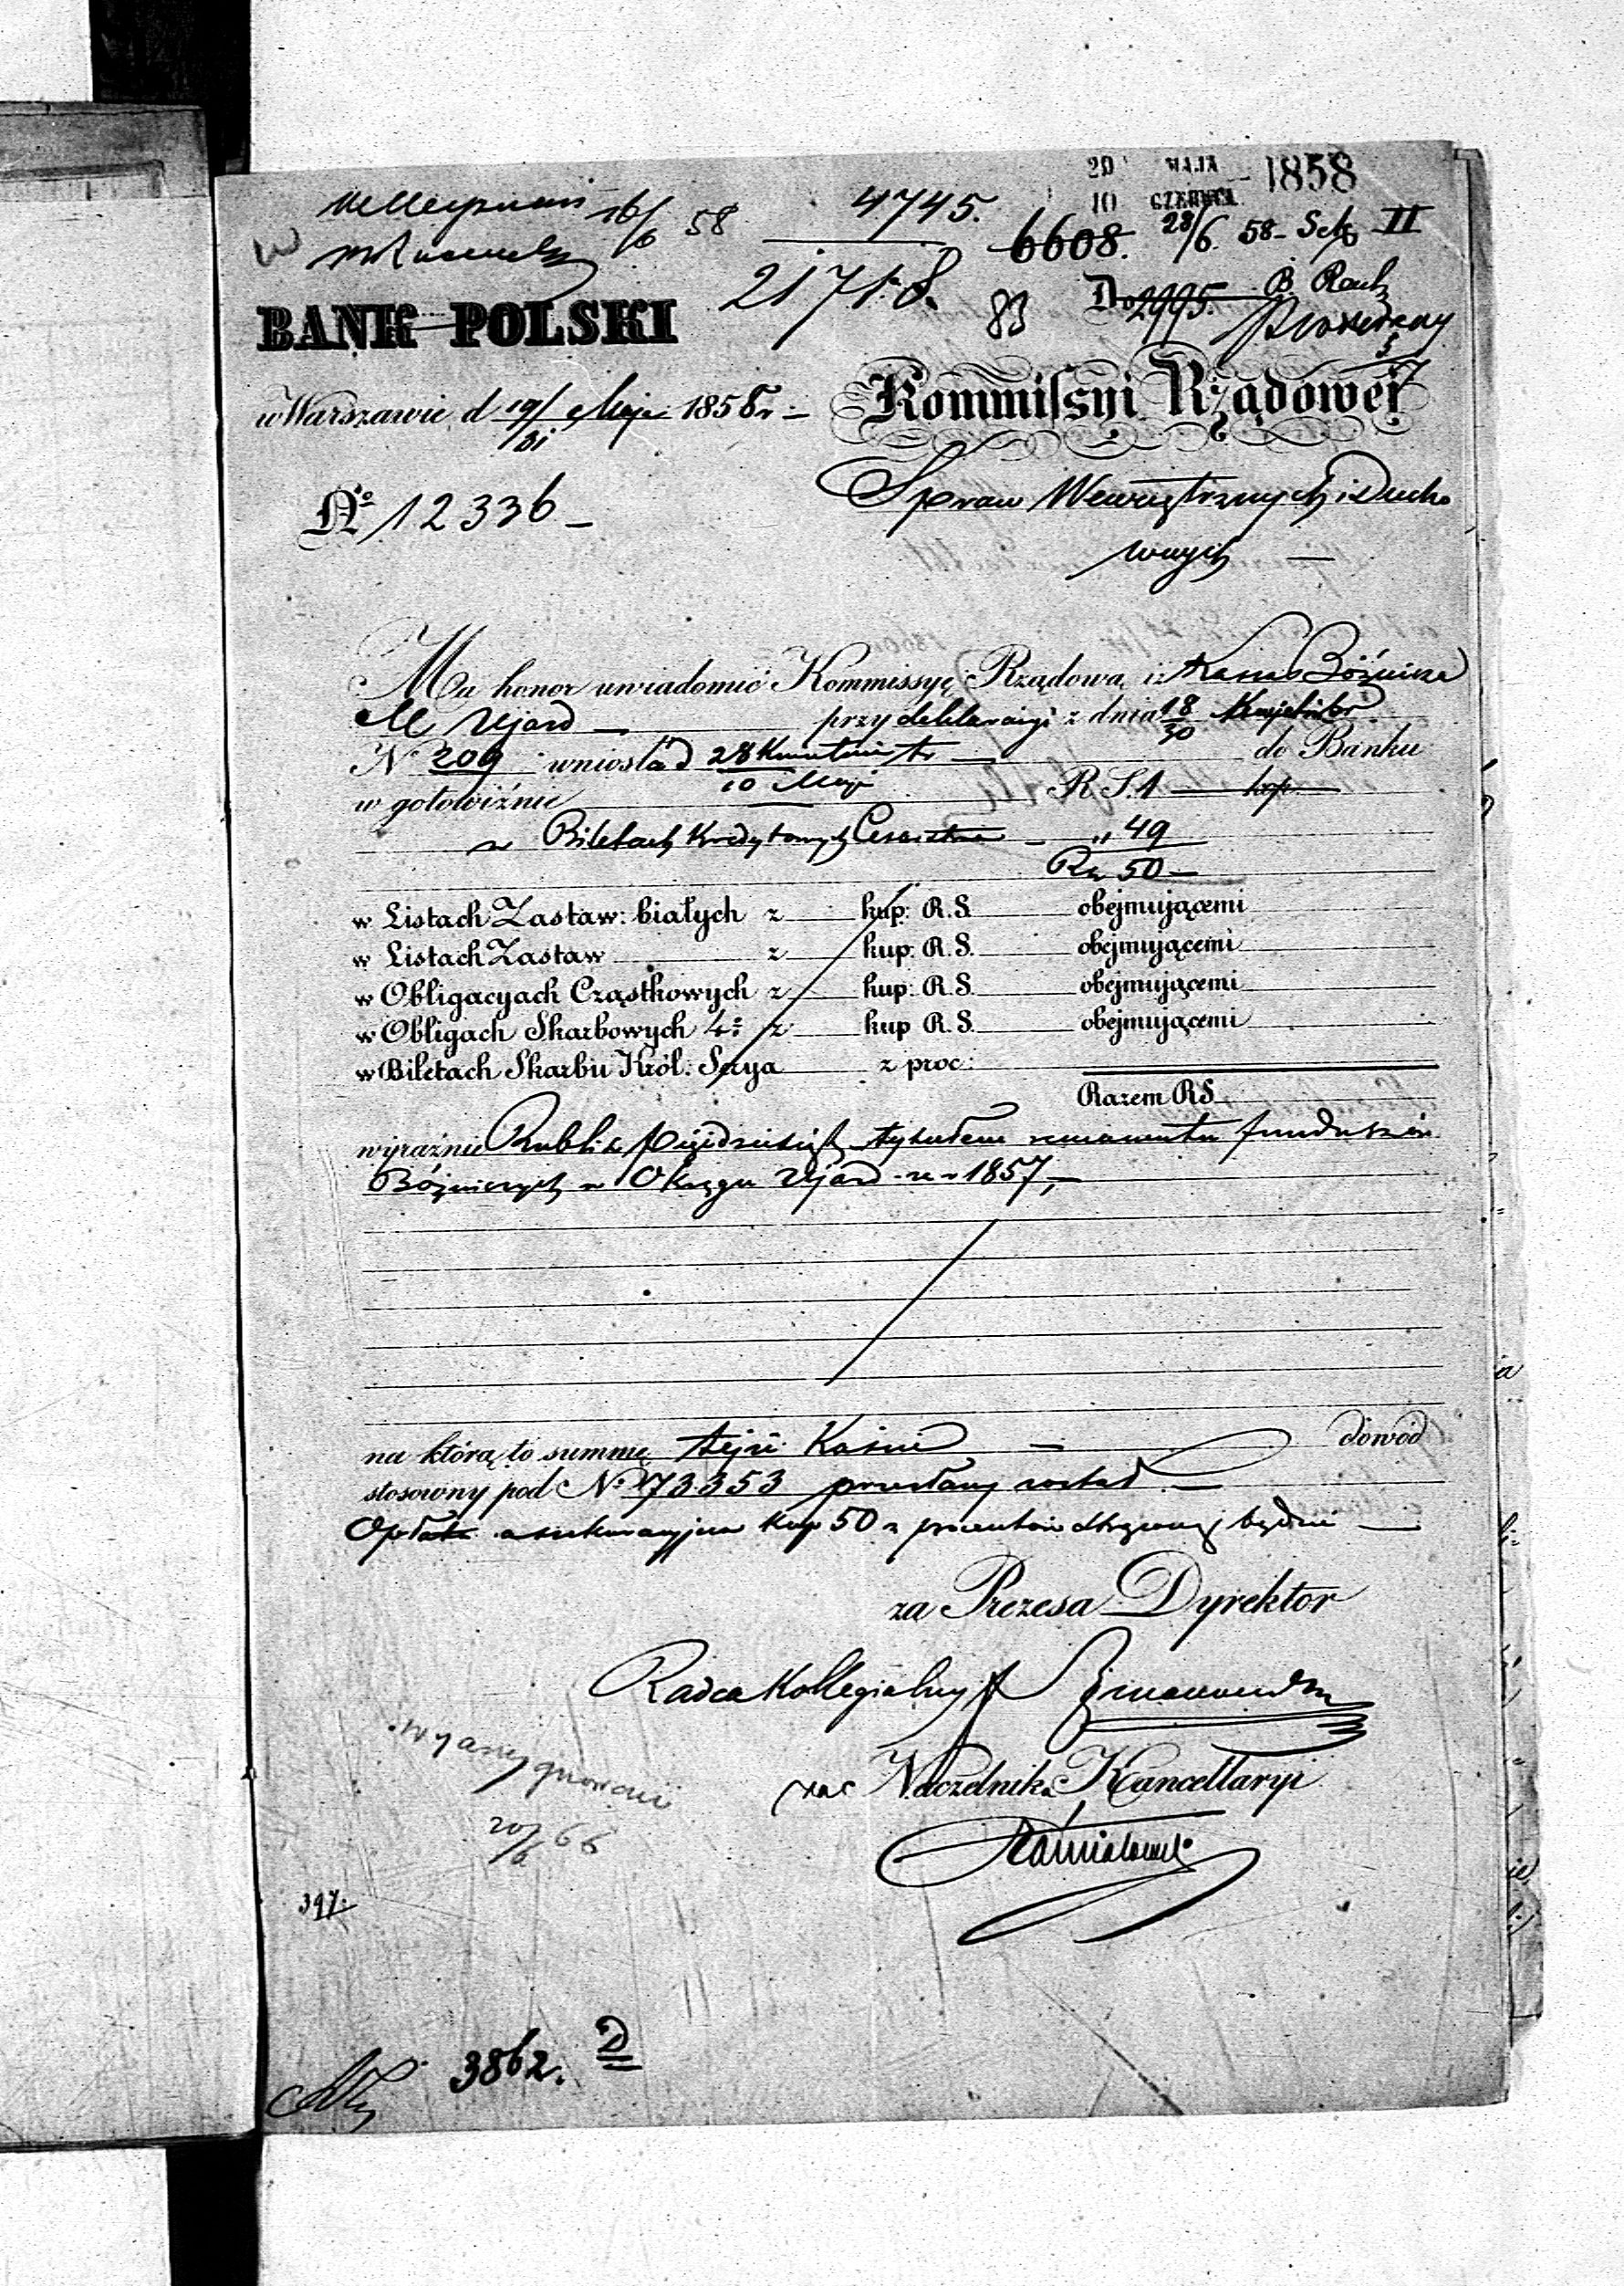 29 MAJA 1858
10 CZERWCA
16/6 58
4745.
6608. 28/6 58 - II
21718.
83
Do 2995.
BANK POLSKI
w Warszawie d 19/31 Maja 1858 r
Kommissyi Rządowej
No 12336 -
Spraw Wewnętrznych i Ducho
wnych
Ma honor uwiadomić Kommissyę Rządową iż Kassa Bóżnicza
M Ujazd przy deklaracyi z dnia 18/30 Kwietnia
N 209 wniosła d 28 Kwietnia / 10 Maja do Banku
w gotowiźnie R S. 1 kop.
w Biletach Kredytowych Cesarstwa - „ 49
Rs 50 -
w Listach Zastaw: białych z kup: R. S. obejmującemi
w Listach Zastaw z kup: R. S. obejmującemi
w Obligacyach Cząstkowych z kup: R. S. obejmującemi
w Obligach Skarbowych 4: z kup R. S. obejmującemi
w Biletach Skarbu Król: Serya z proc:
Razem RS
wyraźnie Rubli sr pięćdziesiąt tytułem remanentu funduszów
Bóżniczych w Okręgu Ujazd za r 1857,
na którą to summę tejże Kassie dowód
stosowny pod No 173.353 przesłany został. -
Opłata assekuracyjna kop 50 z procentów strąconą będzie
za Prezesa Dyrektor
Radca Kollegialny
za Naczelnika Kancellaryi
20/6 66
397.
3862. D